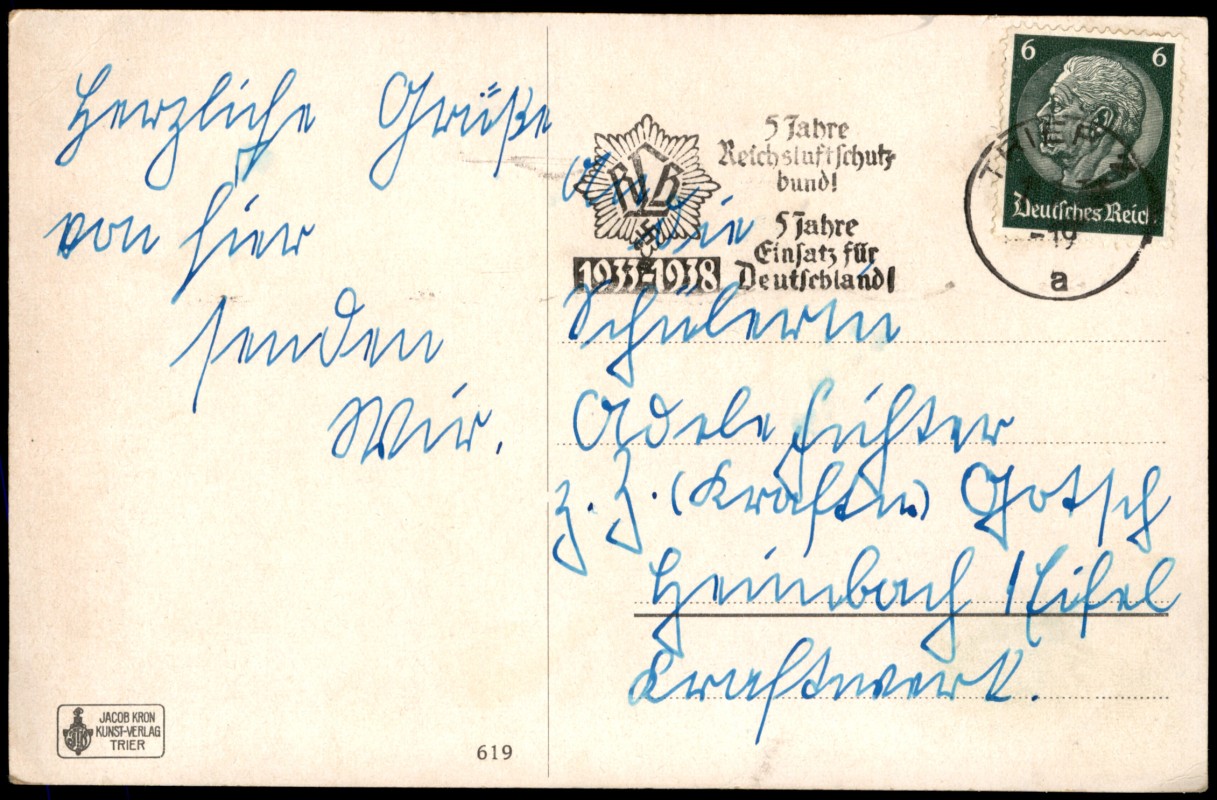 Herzliche Grüße
von hier
senden
Wir.
JACOB KRON
KUNST-VERLAG
TRIER
619
RLB
1933-1938
5 Jahre
Reichsluftschutz
bund!
5 Jahre
Einsatz für
Deutschland!
6 6
Deutsches Reich
TRIER
-19
a
An
die
Schülerin
Adele
z. Z. Gotsch
Heimbach / Eifel
Kraftwerk.